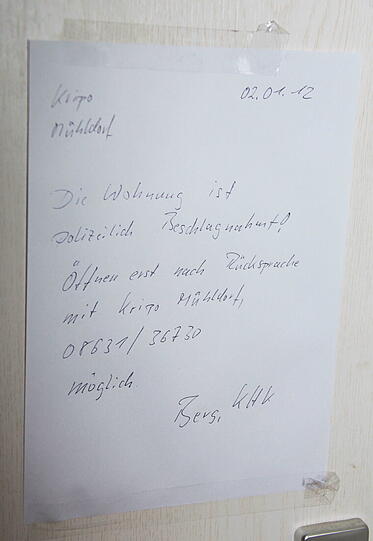 Kripo 02.01.12
Mühldorf
Die Wohnung ist
polizeilich Beschlagnahmt!
Öffnen erst nach Rücksprache
mit Kripo Mühldorf,
08631/36730
möglich.
Berg, KHK